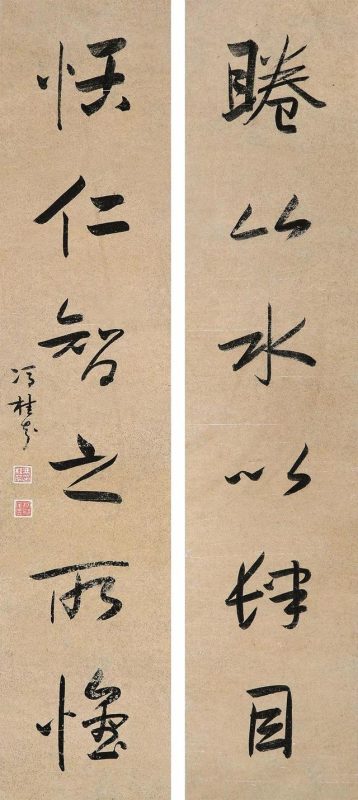 睠山水以肆目
仁智之所
馮桂芬